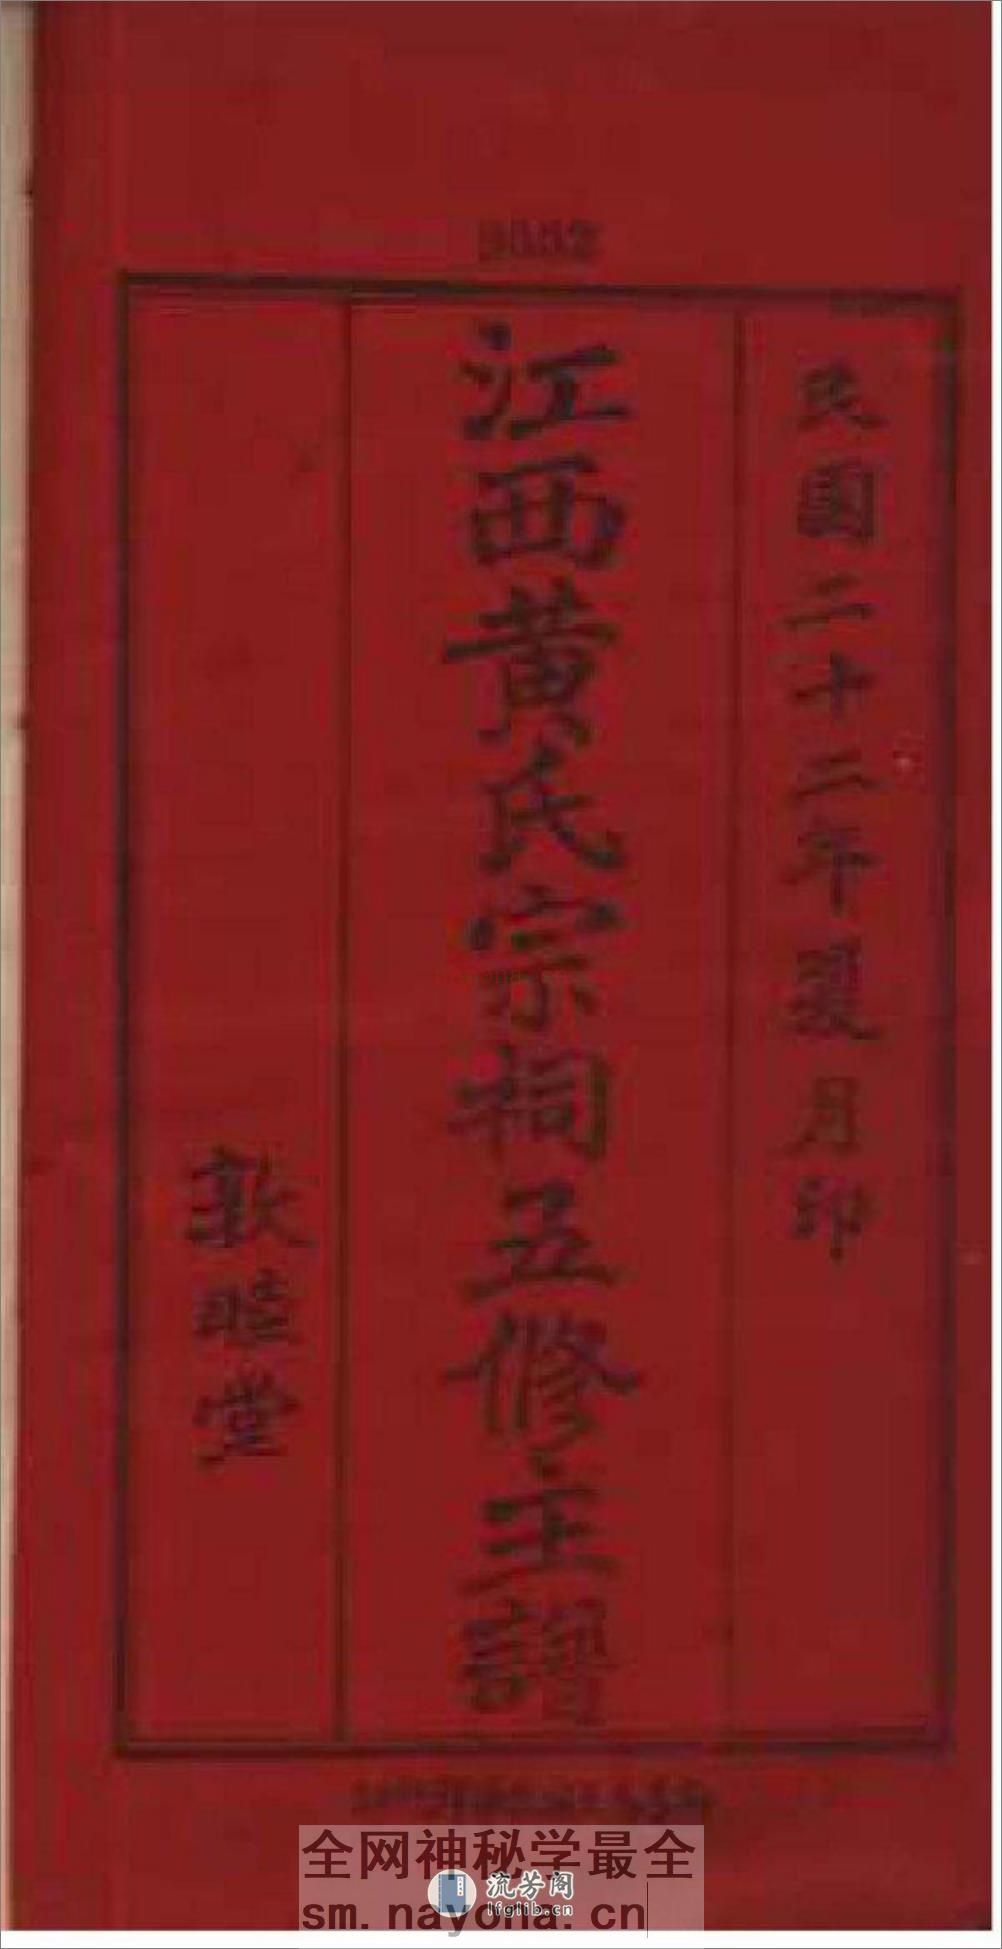 民國二十二年夏月印
江西黃氏宗祠五修主譜
敦睦堂
全网神秘学最全
流芳阁
lfglib.cn
sm.nayona.cn